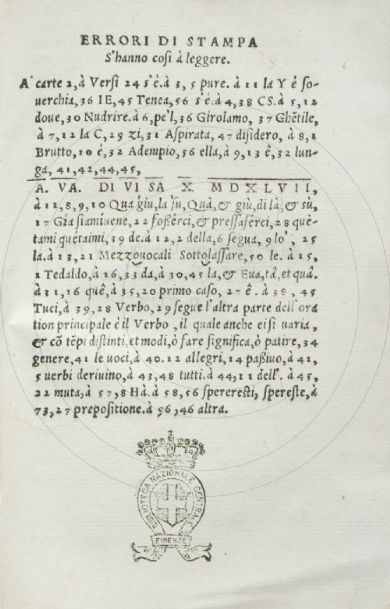 ERRORI DI STAMPA
S'hanno così à leggere.
A' carte 2, à Versi 24 s'é. à 3, 5 pure. à 11 la Y é so-
uerchia, 36 IE, 45 Tenea, 56 s'é. à 4, 38 CS. à 5, 12
doue, 30 Nudrire. à 6, pe'l, 36 Girolamo, 37 Ghẽtile,
à 7, 12 la C, 29 zi, 31 Aspirata, 47 disidero, à 8, 1
Brutto, 10 é, 32 Adempio, 56 ella, à 9, 13 ê, 32 lun-
ga, 41, 42, 44, 45,
A. VA. DI VI SA X MDXLVII,
à 11, 8, 9, 10 Quà giu, la 'su, Quà, & giù, di là, & sù,
17 Gia siamiuene, 22 fossérci, & pressasérci, 28 que-
tami quetaimi, 39 de. à 12, 2 della, 6 segua, 9 lo', 25
la. à 13, 21 Mezzouocali Sottolassare, 50 le. à 15,
1 Tedaldo, à 16, 33 da, à 30, 45 la, & Eua, tá, et quá.
à 31, 16 quê, à 35, 20 primo caso, 27 ê. à 38, 45
Tuci, à 39, 28 Verbo, 29 segue l'altra parte dell'ora
tion principale é il Verbo, il quale anche ei si uaria,
& cõ tẽpi distinti, et modi, ò fare significa, ò patire, 34
genere, 41 le uoci, à 40. 12 allegri, 14 passiuo, à 41,
5 uerbi deriuino, à 43, 48 tutti. à 44, 11 dell'. à 45,
22 muta, à 57, 8 Há. à 58, 56 spereresti, spereste, à
73, 27 prepositione. à 96, 46 altra.
BIBLIOTECA NAZIONALE CENTRALE
FIRENZE